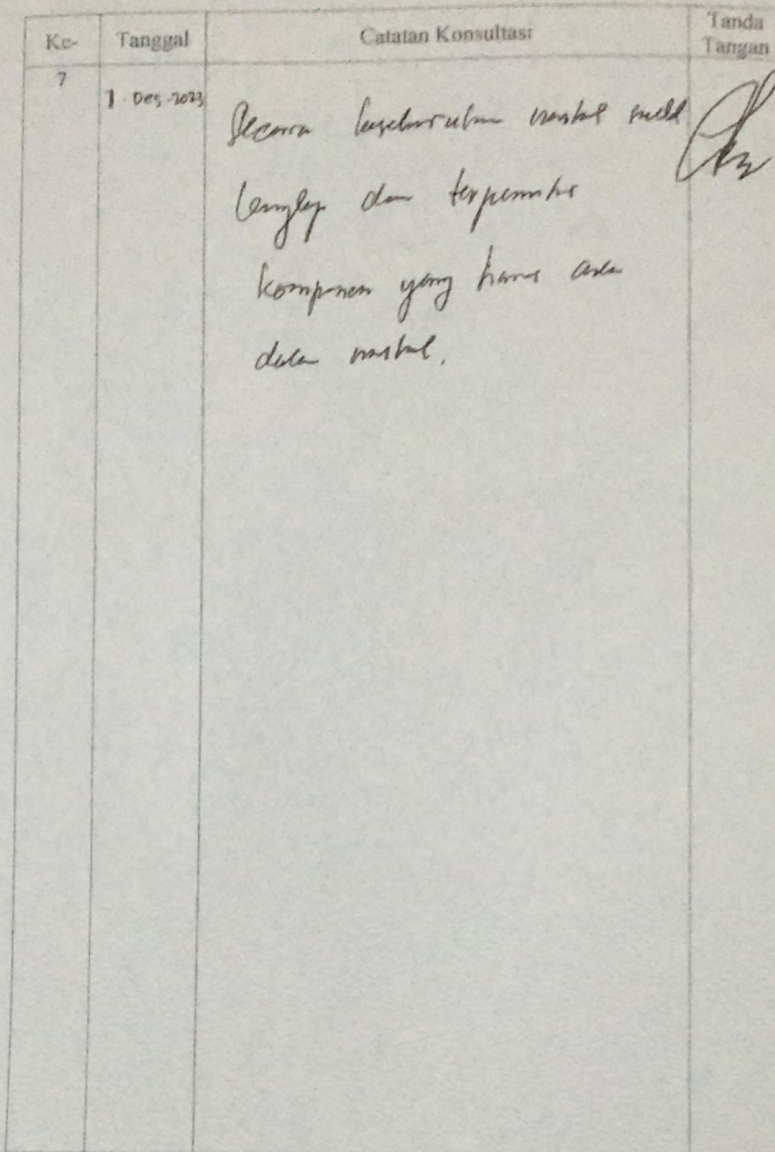 Ke- Tanggal Catatan Konsultasi Tanda Tangan
7 1 Des 2023 Secara keseluruhan naskah sudah
lengkap dan terpenuhi
komponen yang harus ada
dalam naskah.